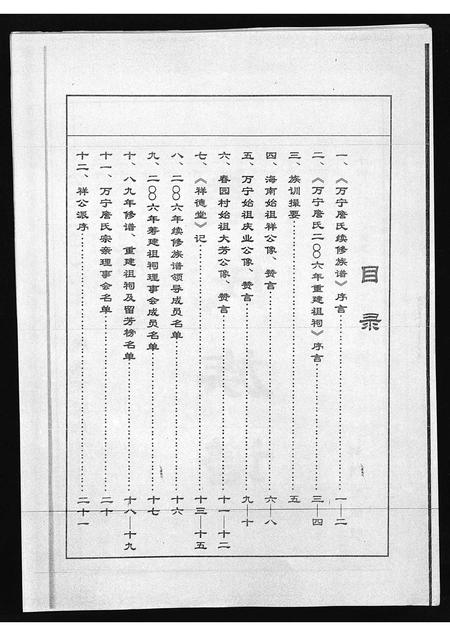 目录
一、《万宁詹氏续修族谱》序言……一—二
二、《万宁詹氏二〇〇六年重建祖祠》序言……三—四
三、族训撮要……五
四、海南始祖祥公像、赞言……六—八
五、万宁始祖庆业公像、赞言……九—十
六、春园村始祖大芳公像、赞言……十一—十二
七、《祥德堂》记……十三—十五
八、二〇〇六年续修族谱领导成员名单……十六
九、二〇〇六年筹建祖祠理事会成员名单……十七
十、八九年修谱、重建祖祠及留芳榜名单……十八—十九
十一、万宁詹氏宗亲理事会名单……二十
十二、祥公派序……二十一